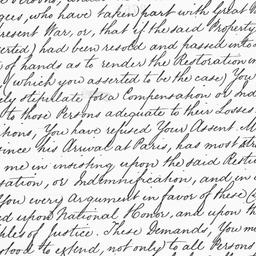 gees, who have taken part with Great
present War, or, that if the said Property
erted) had been resold and passed into
of hands as to render the Restoration
(which you asserted to be the case), You
ly stipulate for a Compensation or
to those Persons adequate to their Losses
tions, You have refused Your Assent
since his Arrival at Paris, has most
me in insisting upon the said
sation, or Indemnification, and in
You every Argument in favor of these
d upon National Honor, and upon the
ples of Justice. These Demands, You
stood to extend, not only to all Persons